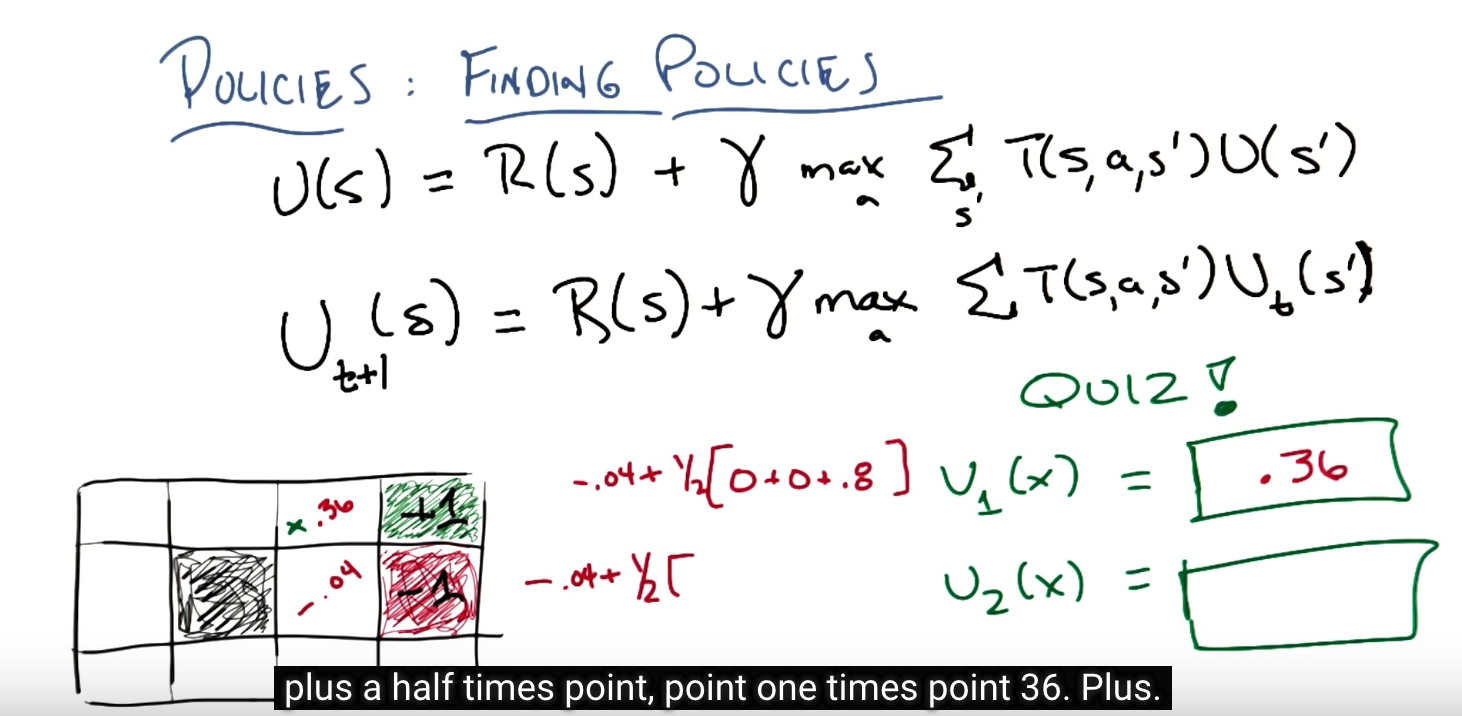 POLICIES: FINDING POLICIES
U(s) = R(s) + γ max_a Σ_s' T(s,a,s')U(s')
U_t+1(s) = R(s) + γ max_a Σ T(s,a,s')U_t(s')
QUIZ!
x .36 +1 -.04+ 1/2[0+0+.8] U_1(x) = .36
-.04 -1 -.04+ 1/2[ U_2(x) =
plus a half times point, point one times point 36. Plus.